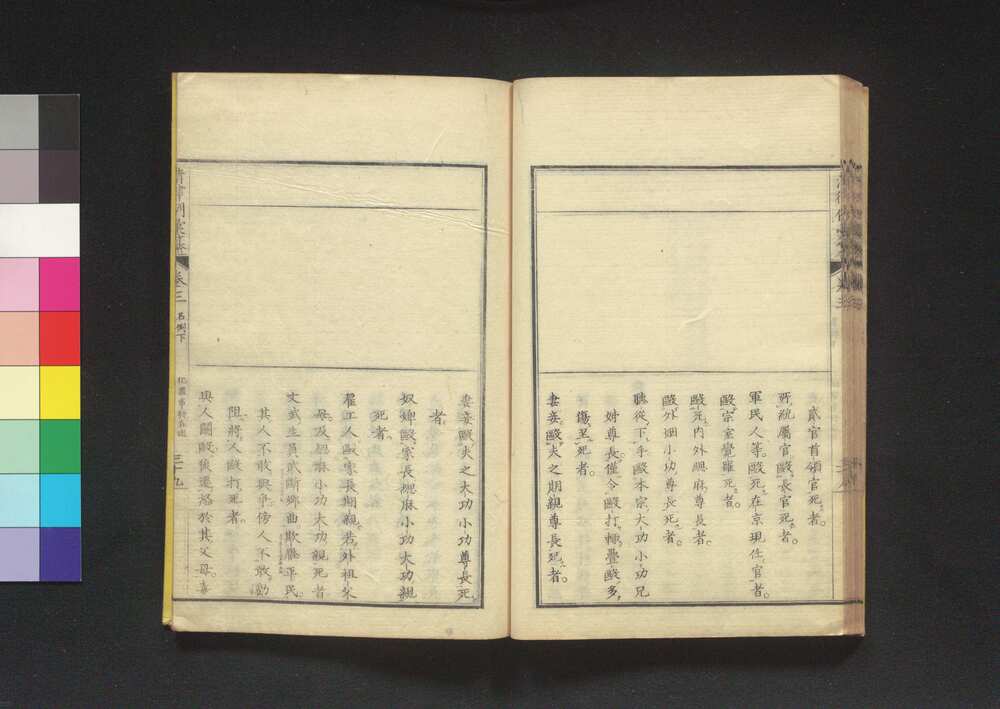 貳官首領官死者。
所統屬官毆長官死者。
軍民人等毆死在京現任官者。
毆宗室覺羅死者。
毆死內外緦麻尊長者。
毆外姻小功尊長死者。
聽從下手毆本宗大功小功兄
姊尊長僅令毆打輒疊毆多
傷至死者。
妻妾毆夫之期親尊長死者。
妻妾毆夫之大功小功尊長死
者。
奴婢毆家長緦麻小功大功親
死者。
雇工人毆家長期親若外祖父
母及緦麻小功大功親死者
文武生員武斷鄉曲欺壓平民
其人不敢與爭傍人不敢勸
阻將人毆打死者。
與人鬪毆後遷怒於其父母
卷三
名例下
三十九